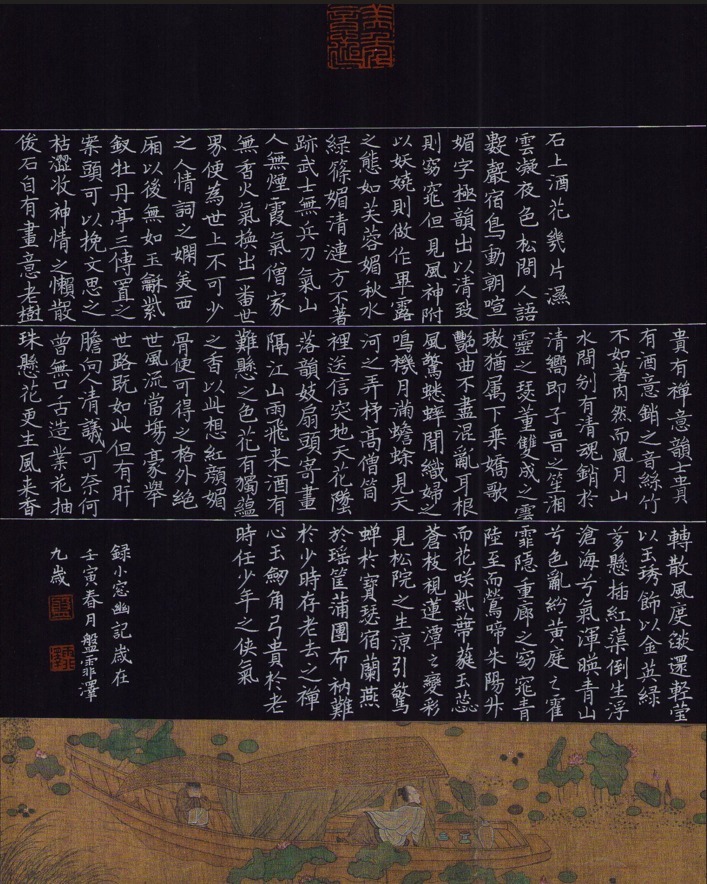 石上酒花幾片濕
雲凝夜色松間人語
數聲宿鳥動朝喧
媚字極韻出以清致
則窈窕但見風神附
以妖嬈則做作畢露
之態如芙蓉媚秋水
綠篠媚清漣方不著
跡武士無兵刀氣山
人無煙霞氣僧家
無香火氣換出一番世
界便為世上不可少
之人情詞之嫻美西
廂以後無如玉龢紫
釵牡丹亭三傳置之
案頭可以挽文思之
枯澀收神情之懶散
俊石自有畫意老樹
貴有禪意韻士貴
有酒意銷之音絲竹
不如著內然而風月山
水間別有清魂銷於
清響即子晉之笙湘
靈之瑟董雙成之雲
璈猶屬下乘嬌歌
艷曲不盡混亂耳根
風驚蟋蟀聞織婦之
鳴機月滿蟾蜍見天
河之弄杼高僧筒
裡送信突地天花墜
落韻妓扇頭寄畫
隔江山雨飛來酒有
難懸之色花有獨蘊
之香以此想紅顏媚
骨便可得之格外絕
世風流當場豪舉
世路既如此但有肝
膽向人清議可奈何
曾無口舌造業花抽
珠懸花更生風來香
轉散風度還輕瑩
以玉琇飾以金英綠
芰懸插紅蕖倒生浮
滄海兮氣渾映青山
兮色亂紛黃庭之霍
霏隱重廊之窈窕青
陸至而鶯啼朱陽升
而花咲紫蒂蕤玉蕊
蒼枝視蓮潭之變彩
見松院之生涼引驚
蟬於寶瑟宿蘭燕
於瑤筐蒲團布衲難
於少時存老去之禪
心玉劒角弓貴於老
時任少年之俠氣
錄小窓幽記歲在
壬寅春月盤霏澤
九歲